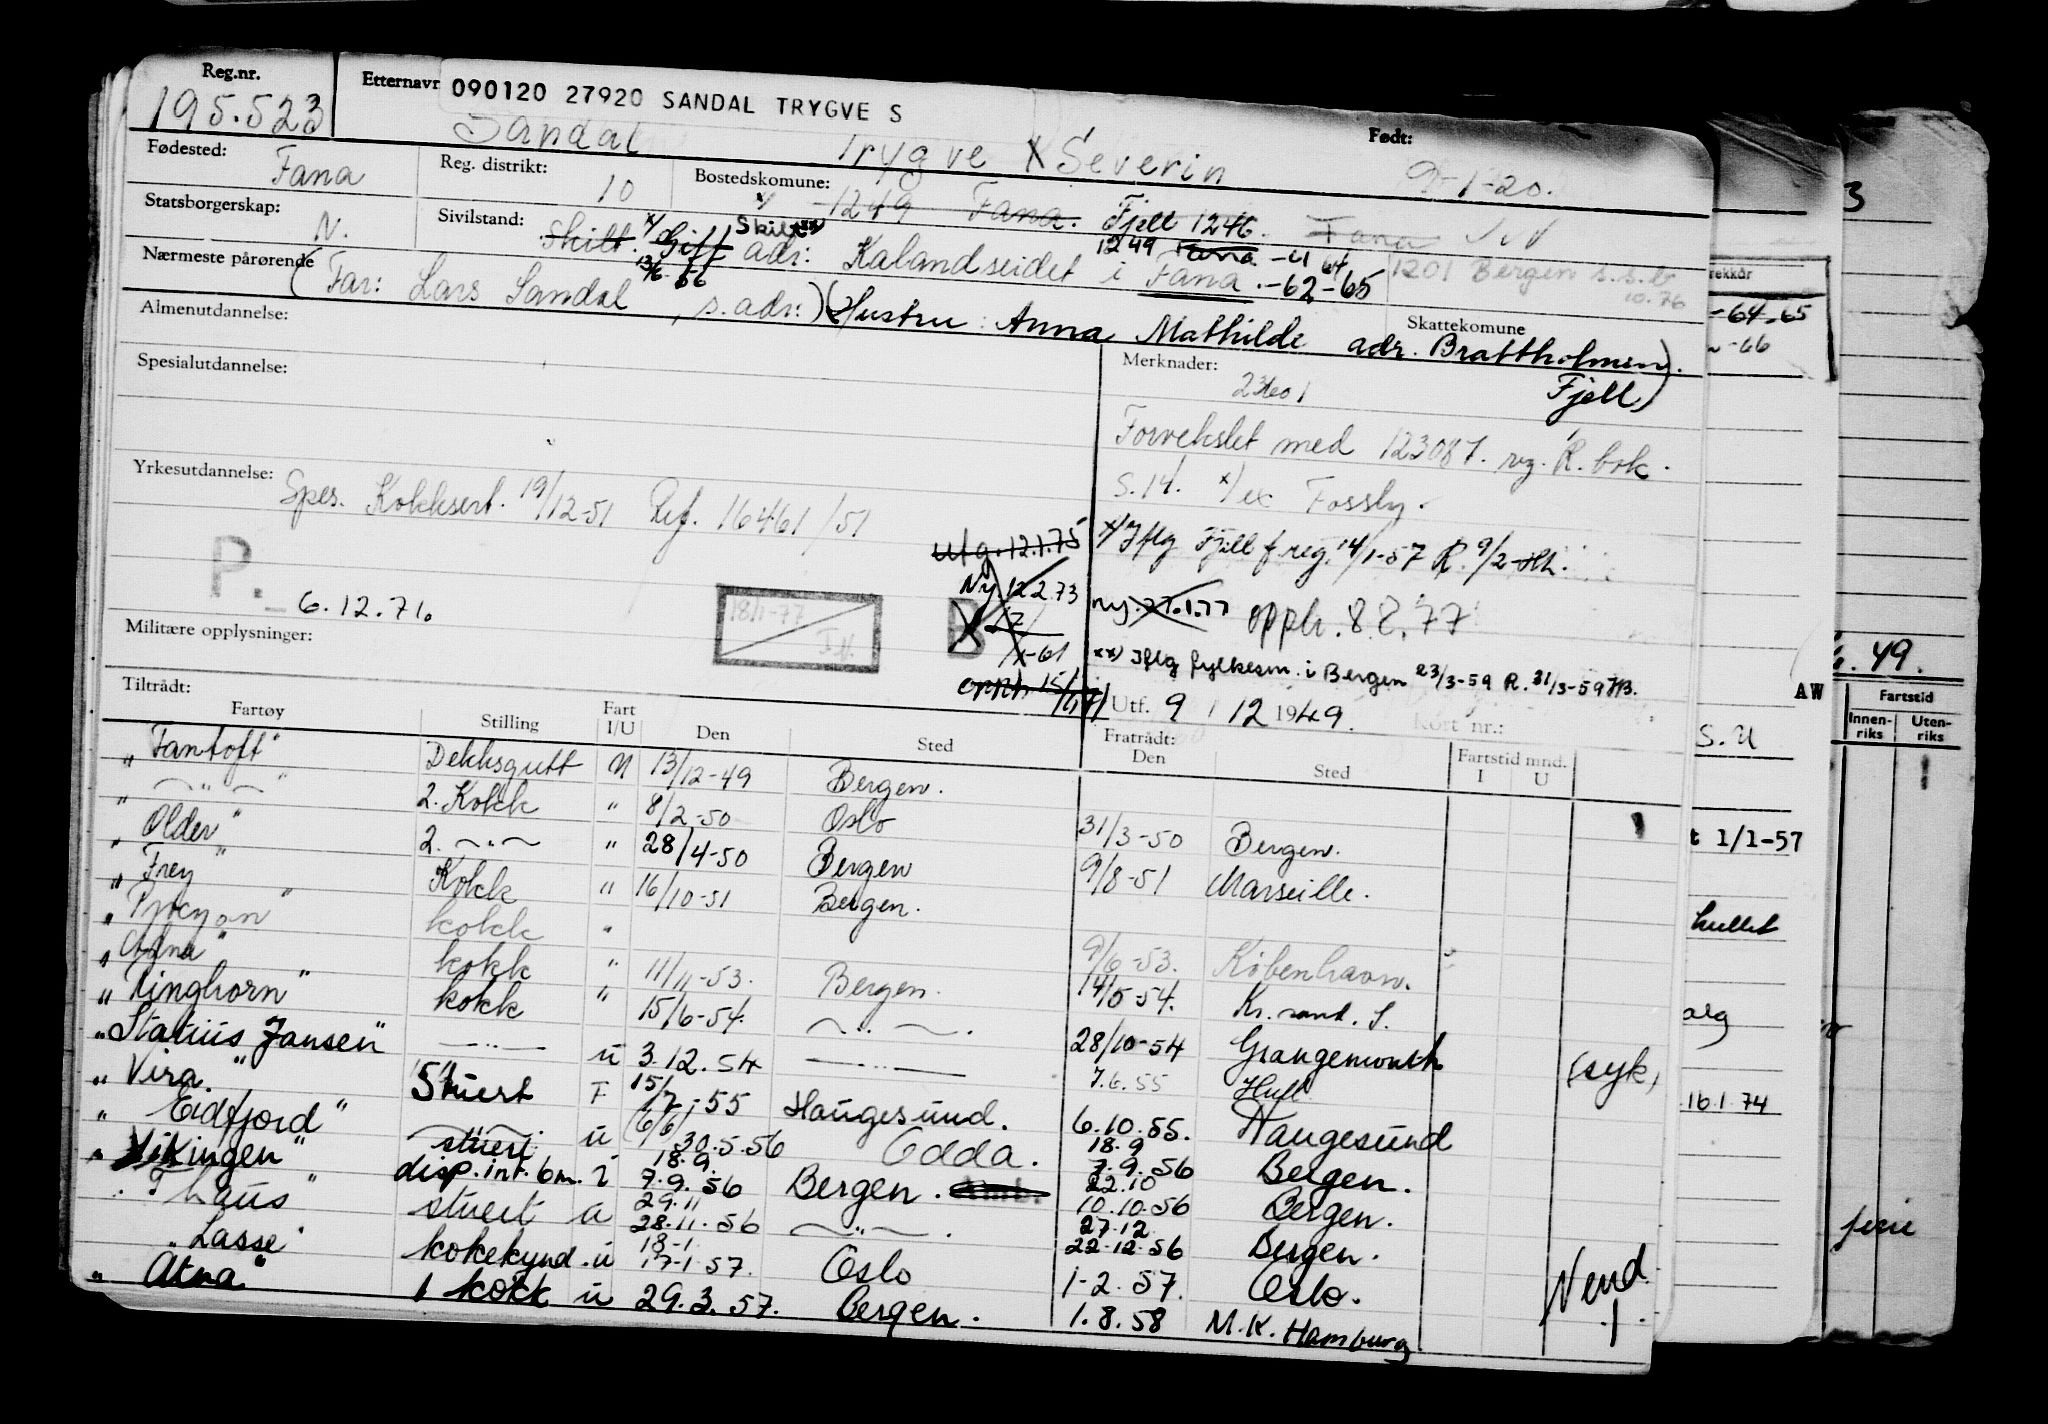 Reg.nr.
195.523
Etternavn
090120 27920 SANDAL TRYGVE S
Sandal Trygve x Severin
Født:
9-1-20.
Fødested: Fana
Reg. distrikt: 10
Bostedskommune: x/ -1249 Fana. Fjell 1246. Fana
1249 Fana -61 64
1201 Bergen s.s.b
10.76
Statsborgerskap: N.
Sivilstand: Skilt. x/ Gift Skilt xx/
13/6-56
adr: Kalandseidet i Fana.-62-65
Nærmeste pårørende (Far: Lars Sandal, s.adr:) (Hustru: Anna Mathilde adr. Brattholmen).
Fjell)
Skattekomune
Almenutdannelse:
Spesialutdannelse:
Merknader:
Forvekslet med 123087. vg. R. bok.
S.14. x/ ex Fossly.
x/ Iflg Fjell f.reg. 14/1-57 R. 9/2
ny. 27.1.77 opph. 8.2.77
xx) Iflg fylkesm. i Bergen 23/3-59 R. 31/3-59
Utf. 9 / 12 1949.
Kort nr.:
Yrkesutdannelse: Spes. Kokksert. 19/12-51 Ref. 16461/51
P.
6.12.71.
18/1-77
B
Utg. 12.1.75
Ny 12.2.73
Militære opplysninger:
Tiltrådt:
Fratrådt:
Fartøy Stilling Fart I/U Den Sted Den Sted Fartstid mnd. I U
"Fantoft" Dekksgutt U 13/12-49 Bergen.
" — " — " 2. Kokk " 8/2-50 Oslo 31/3-50 Bergen.
"Older" 2. — " — " 28/4-50 Bergen 9/8-51 Marseille.
"Frey" Kokk " 16/10-51 Bergen.
kokk " 9/6-53. København.
kokk " 11/11-53. Bergen. 14/5-54. Kr.sand. S.
"Ringhorn" kokk " 15/6-54. — " — . 28/10-54 Grangemouth (syk)
"Statius Jansen" — " — u 3.12.54 — " — 7.6.55 Hull
"Vira." Stuert F 15/7-55 Haugesund. 6.10.55. Haugesund
"Eidfjord" stuert u (6/6) 30.5.56 Odda. 18.9 7.9.56 Bergen.
"Vikingen" disp.int.bm. i 18.9. 7.9.56 Bergen. 22.10 10.10.56 Bergen.
"Thaus" stuert a 29.11 28.11.56 — " — . 27.12 22.12.56 Bergen.
"Lasse" kokekynd. u 18-1 17-1.57. Oslo 1-2.57. Oslo.
"Atna" 1 kokk u 29.3.57. Bergen. 1.8.58 M.K. Hamburg
Vend!
3
-64-65
-66
6. 49.
AW
Fartstid
Innenriks Utenriks
S. U
t 1/1-57
hullet
alg
16.1.74
ferie